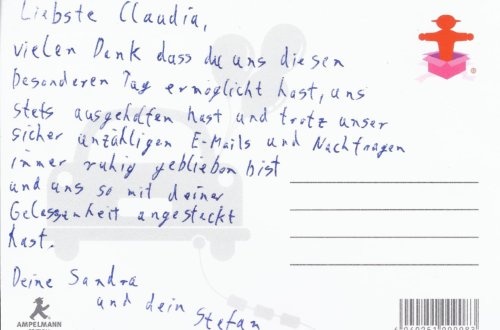 Liebste Claudia,
vielen Dank dass du uns diesen
besonderen Tag ermöglicht hast, uns
stets ausgeholfen hast und trotz unser
sicher unzähligen E-Mails und Nachfragen
immer ruhig geblieben bist
und uns so mit deiner
Gelassenheit angesteckt
hast.
Deine Sandra
und dein Stefan
®
AMPELMANN